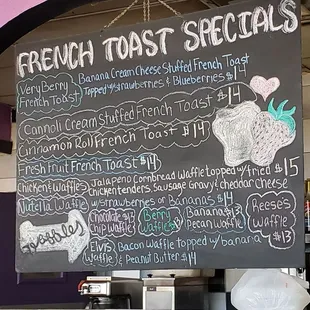 FRENCH TOAST SPECIALS
Very Berry
French Toast
Banana Cream Cheese Stuffed French Toast
Topped w/ strawberries & Blueberries $14
Cannoli Cream Stuffed French Toast $14
Cinnamon Roll French Toast $14
Fresh Fruit French Toast $14
Chicken & Waffles
Jalapeno Cornbread Waffle topped w/ fried $15
Chicken tenders, Sausage Gravy & cheddar cheese
Nutella Waffle
w/ strawberries or Bananas $14
Waffles
Chocolate $13
Chip Waffle
Berry
Waffle
Banana $13
Pecan Waffle
Reese's
Waffle
$13
Elvis
Waffle
Bacon Waffle topped w/ banana
& Peanut Butter $14